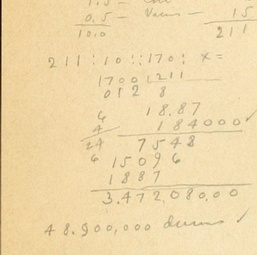 0.5 – 15
10.0 211
211:10::170: x=
1700 211
012 8
6 18.87
4 184000
24 7548
6 15096
1887
3.472,080,00
48.900,000